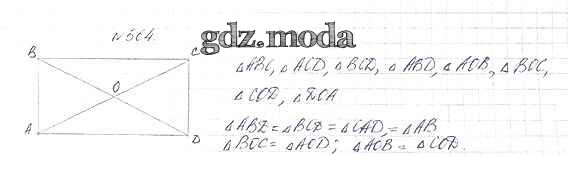 № 504.
gdz.moda
B
C
O
A
D
△ABC, △ACD, △BCD, △ABD, △AOB, △BOC,
△COD, △DOA
△ABD = △BCD = △CAD, = △AB
△BOC = △AOD; △AOB = △COD.